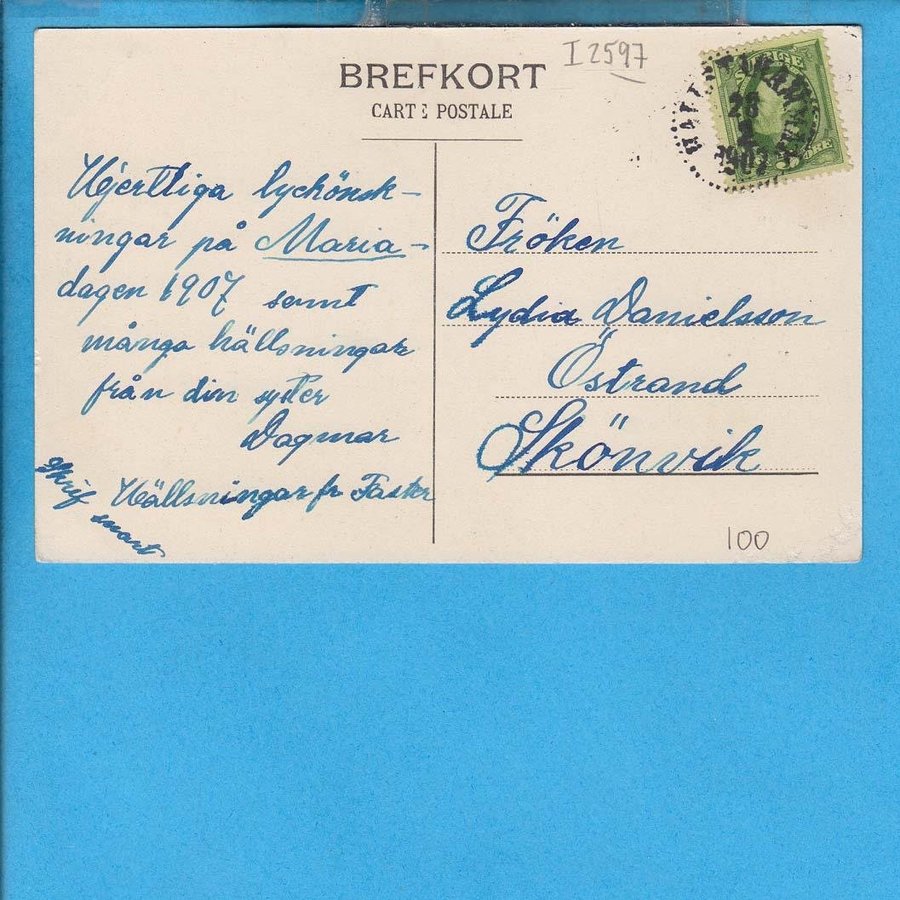 BREFKORT
CARTE POSTALE
I 2597
SVERIGE
28
1907
ÖRE
Hjertliga lyckönsk-
ningar på Maria-
dagen 1907 samt
många hällsningar
från din syster
Dagmar
Hällsningar fr Faster
Skrif
snart
Fröken
Lydia Danielsson
Östrand
Skönvik
100